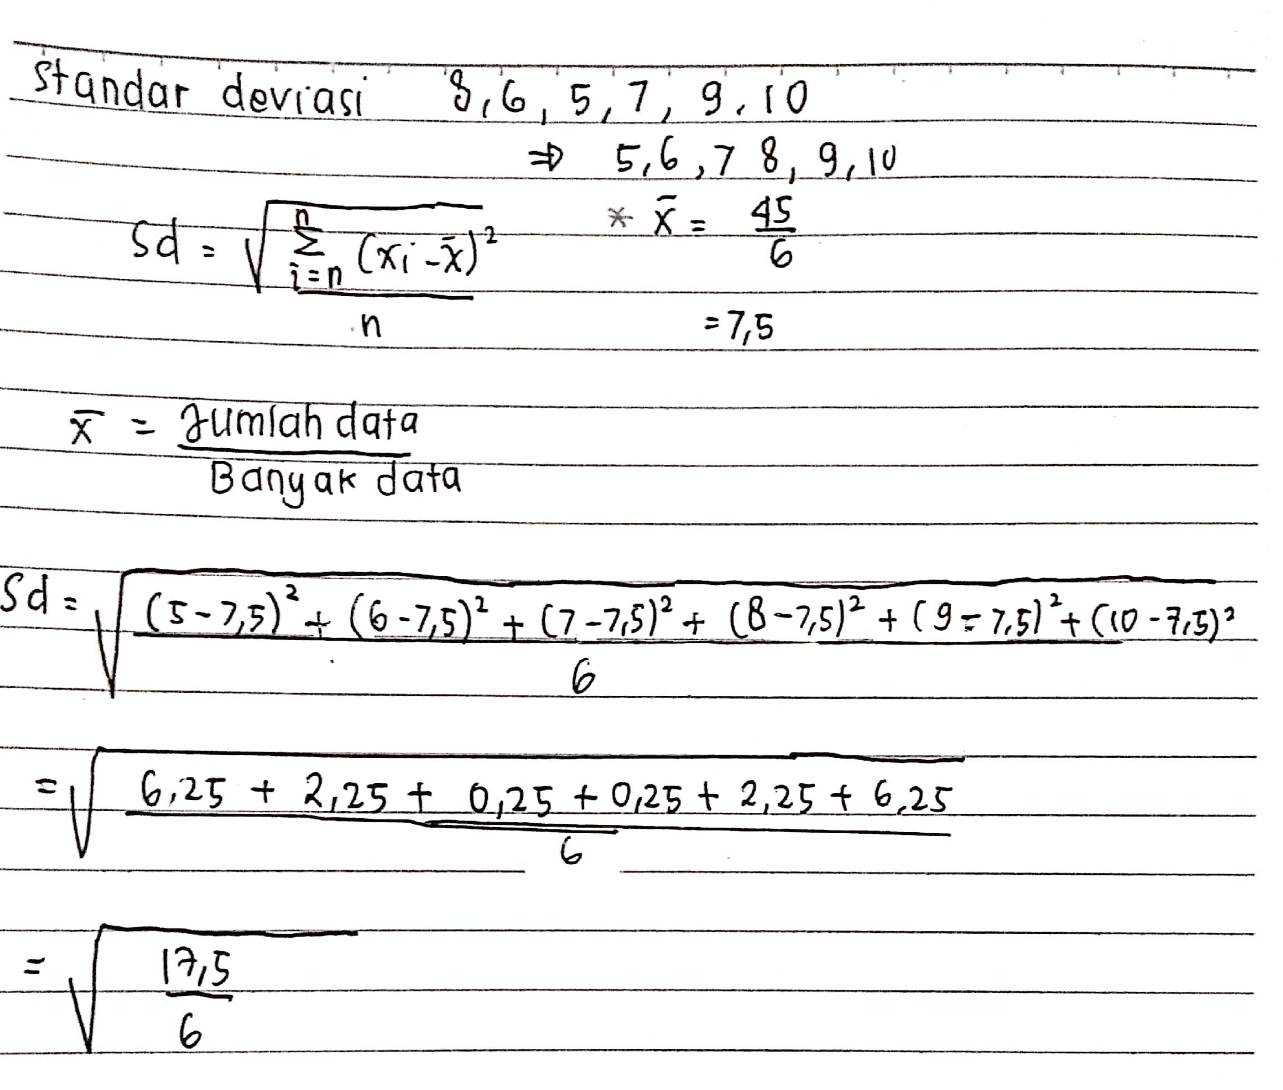 standar deviasi 8, 6, 5, 7, 9, 10
⇒ 5, 6, 7 8, 9, 10
Sd = √ n Σ i=n (xi - x̄)² / n
* x̄ = 45/6
= 7,5
x̄ = Jumlah data / Banyak data
Sd = √ (5-7,5)² + (6-7,5)² + (7-7,5)² + (8-7,5)² + (9-7,5)² + (10-7,5)² / 6
= √ 6,25 + 2,25 + 0,25 + 0,25 + 2,25 + 6,25 / 6
= √ 17,5 / 6